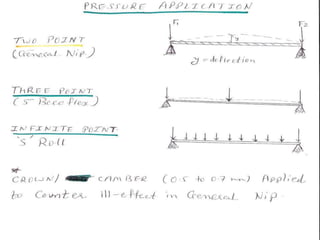 PRESSURE APPLICATION
F1
F2
TWO POINT
(General Nip)
y
y = deflection
THREE POINT
INFINITE POINT
'S' Roll
*
CROWN/ CAMBER (0.5 to 0.7 mm) Applied
to Counter ill-effect in General Nip.